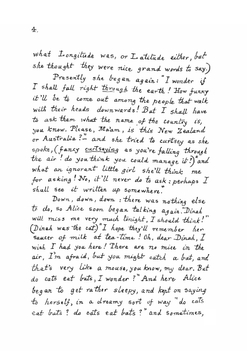 4.
what Longitude was, or Latitude either, but
she thought they were nice grand words to say.)
Presently she began again: "I wonder if
I shall fall right through the earth! How funny
it'll be to come out among the people that walk
with their heads downwards! But I shall have
to ask them what the name of the country is,
you know. Please, Ma'am, is this New Zealand
or Australia?"— and she tried to curtsey as she
spoke, (fancy curtseying as you're falling through
the air! do you think you could manage it?) "and
what an ignorant little girl she'll think me
for asking! No, it'll never do to ask: perhaps I
shall see it written up somewhere."
Down, down, down: there was nothing else
to do, so Alice soon began talking again. "Dinah
will miss me very much tonight, I should think!"
(Dinah was the cat.) "I hope they'll remember her
saucer of milk at tea-time! Oh, dear Dinah, I
wish I had you here! There are no mice in the
air, I'm afraid, but you might catch a bat, and
that's very like a mouse, you know, my dear. But
do cats eat bats, I wonder?" And here Alice
began to get rather sleepy, and kept on saying
to herself, in a dreamy sort of way "do cats
eat bats? do cats eat bats?" and sometimes,